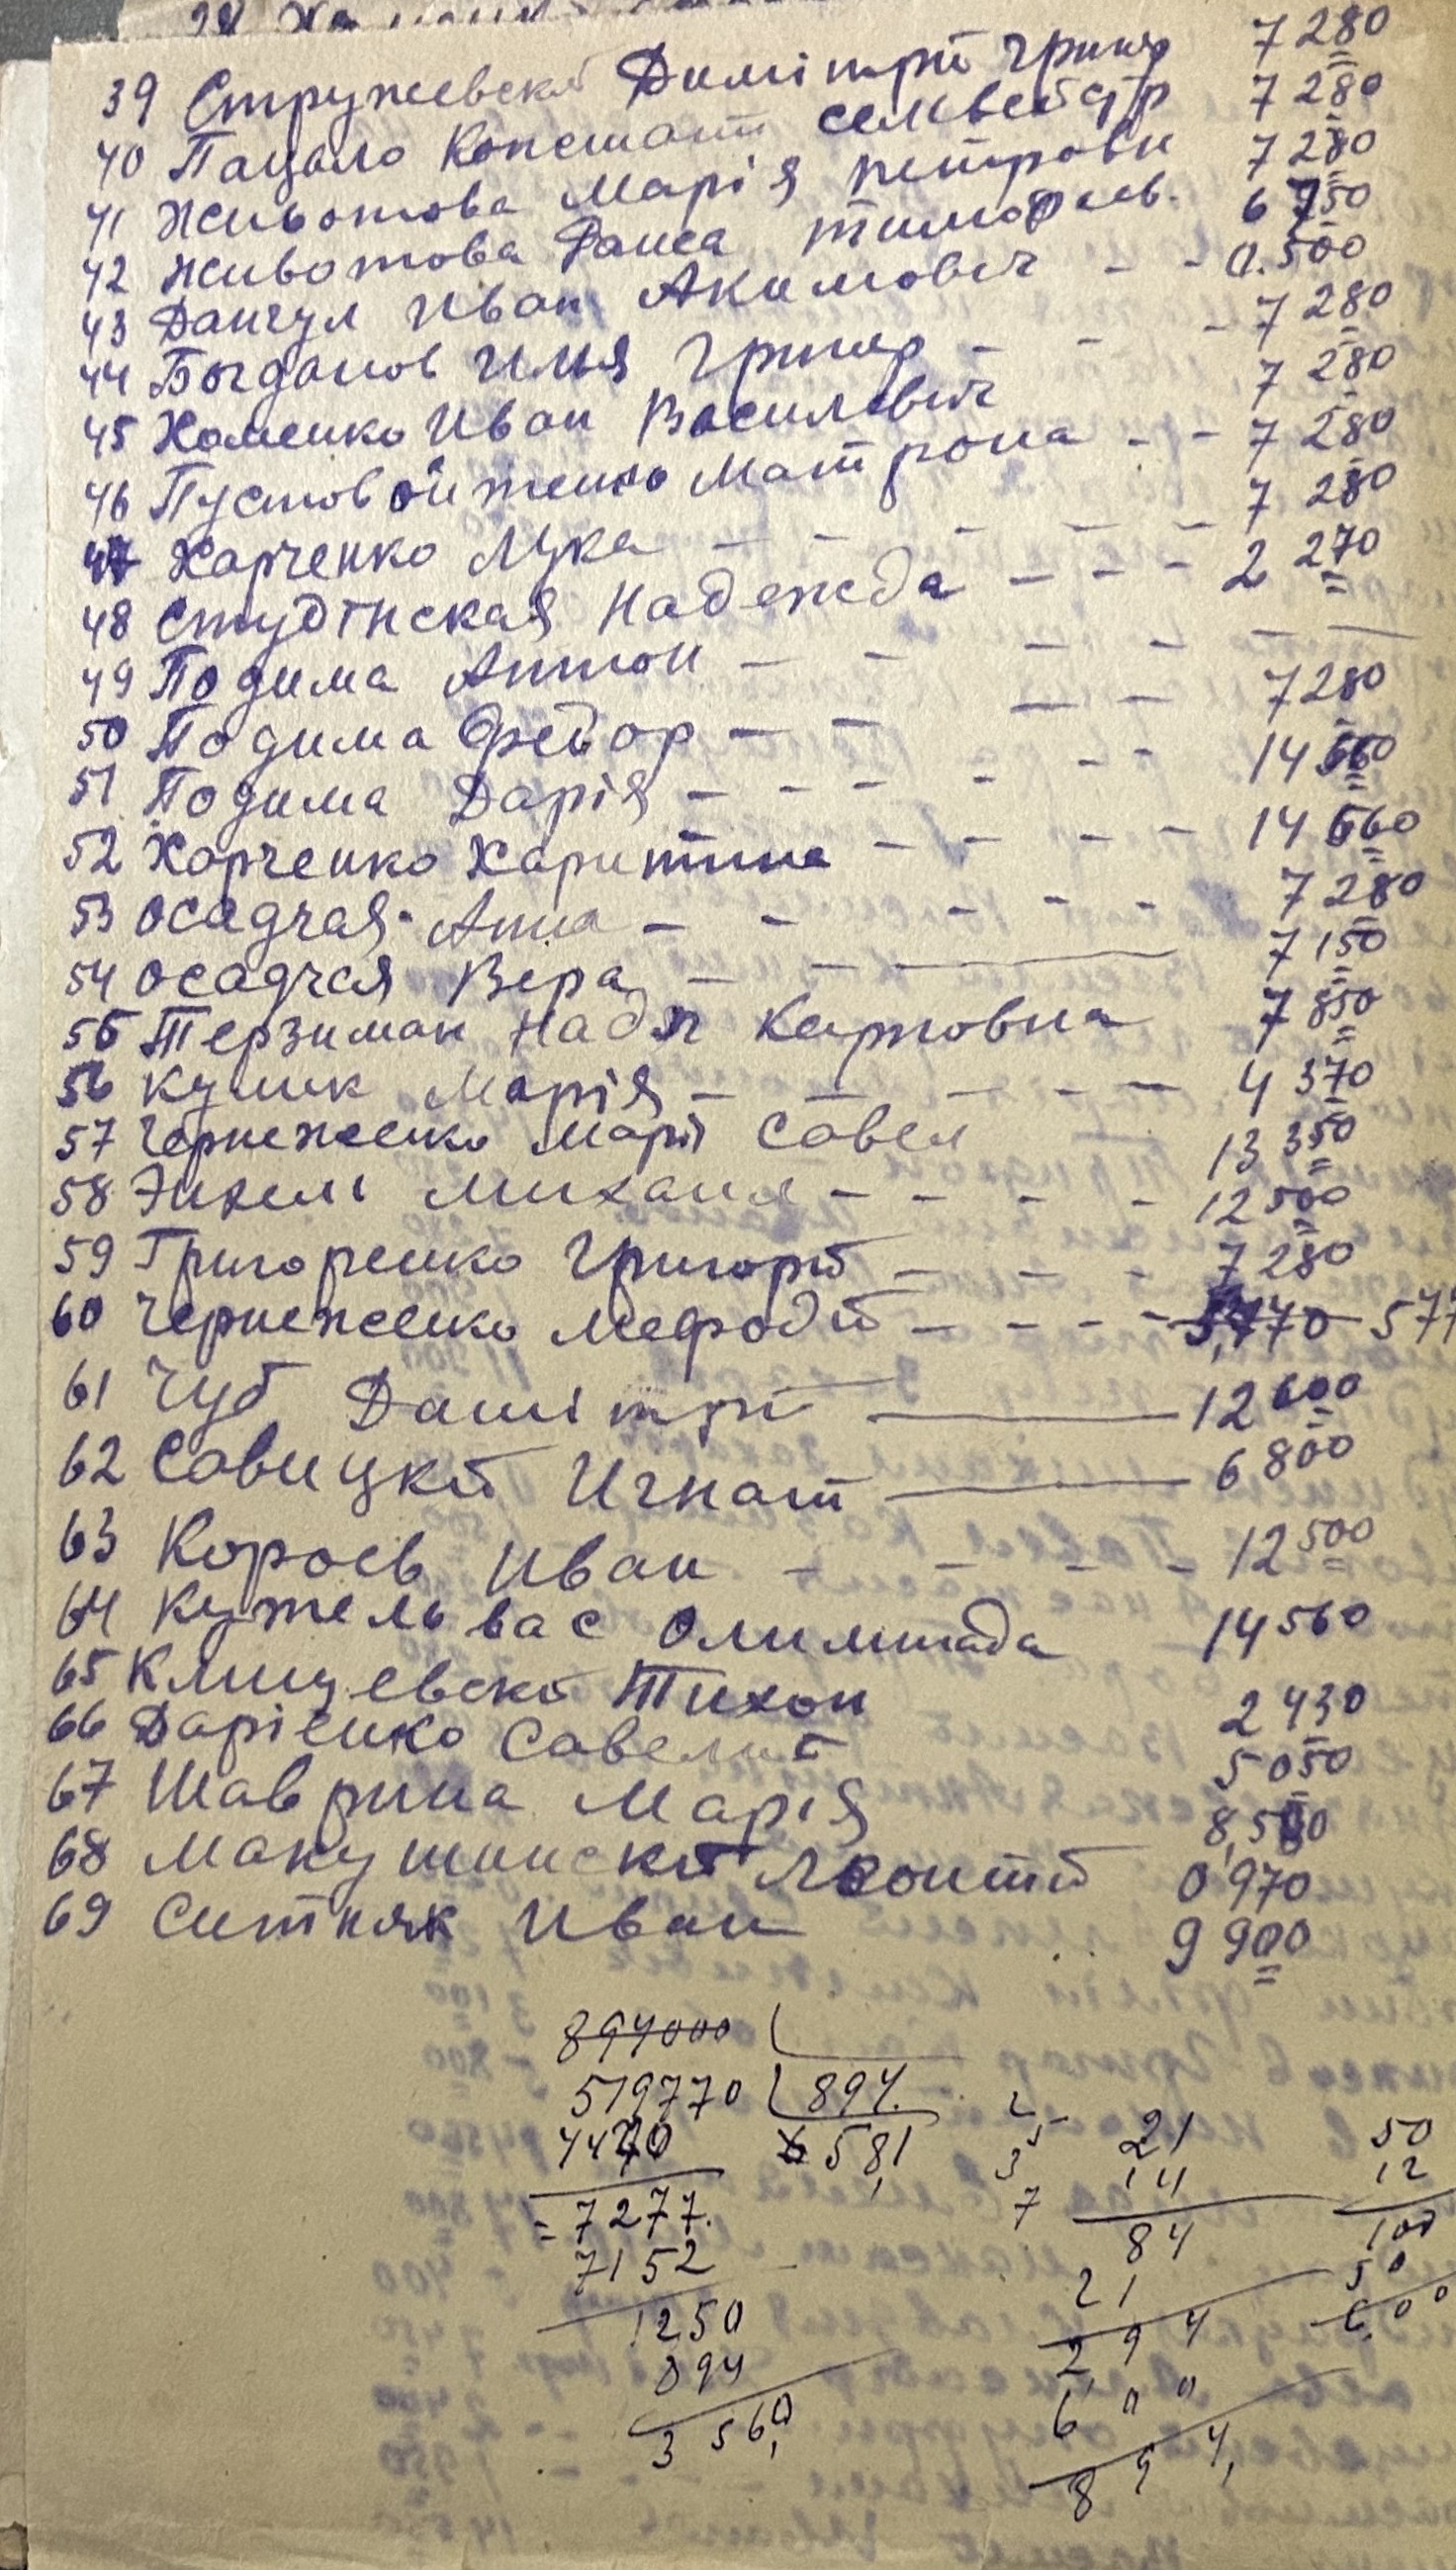 39 Стружевскй Димітрій Григор 7 280
40 Пацало Констант селвестр 7 280
41 Животова Марія петровн 7 280
42 Животова Раиса тимофеев. 6 750
43 Данчул Иван Акимовіч - - 0.500
44 Богданов Илья Григор - - - 7 280
45 Хоменко Иван Василевіч 7 280
46 Пустовойтенко Матрона - - 7 280
47 Харченко Лука - - - - - 7 280
48 Студінская Надежда - - - 2 270
49 Подима Антон - - - - - -
50 Подима Федор - - - - 7280
51 Подима Дарія - - - - - - 14 560
52 Харченко Харитина - - - - 14 560
53 Осадчая Анна - - - - - 7 280
54 Осадчая Вера - - - 7 150
55 Терзиман Надя Карповна 7 850
56 Кулик Марія - - - - 4 370
57 Чернеженко Марія Савел 13 350
58 Энкелі Михаил - - - - 12 500
59 Григоренко Григорій - - - 7 280
60 Чернеженко Мефодій - - - - 5,770 577
61 Чуб Дамітрій - 12 600
62 Савицкій Игнат - 6 800
63 Короев Иван - - - - 12 500
64 Кужель вас Олимпиада 14 560
65 Клищевскй Тихон 2 430
66 Дарієнко Савелий 5 050
67 Шаврина Марія 8,500
68 Макушинскй Леонтій 0 970
69 Ситняк Иван 9 900
894000
519770 894.
4470 581
= 7277.
7152
1250
894
3 560,
2
3
7
21
14
84
21
294
600
894,
50
12
100
50
600